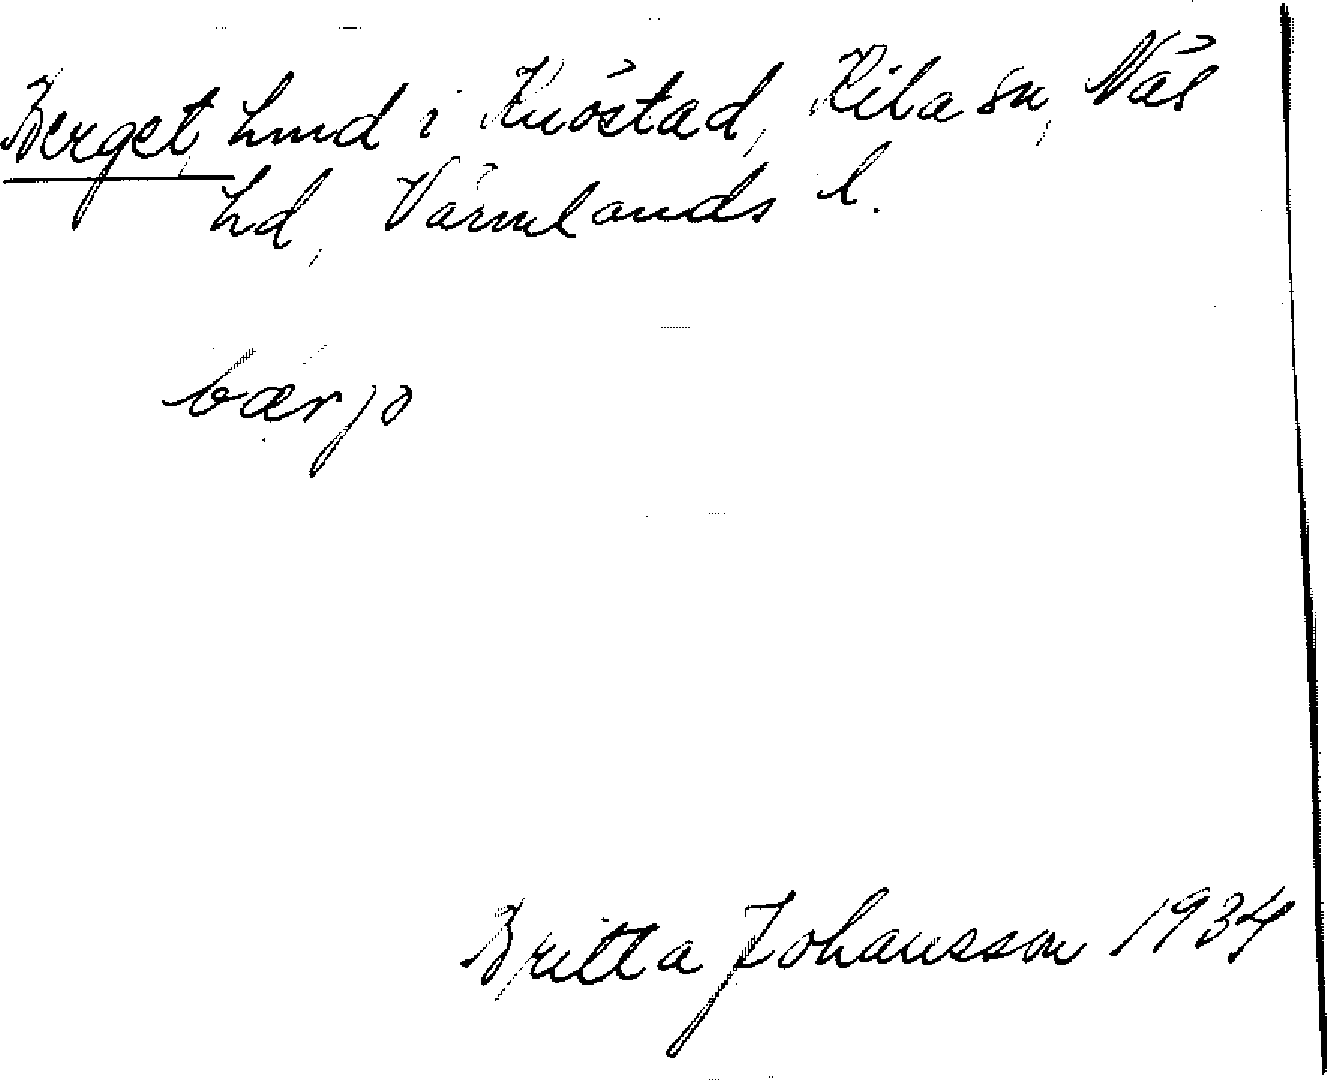 Berget, hmd i Knöstad, Kila sn, Näs
hd, Värmlands l.
bærjo
Britta Johansson 1934